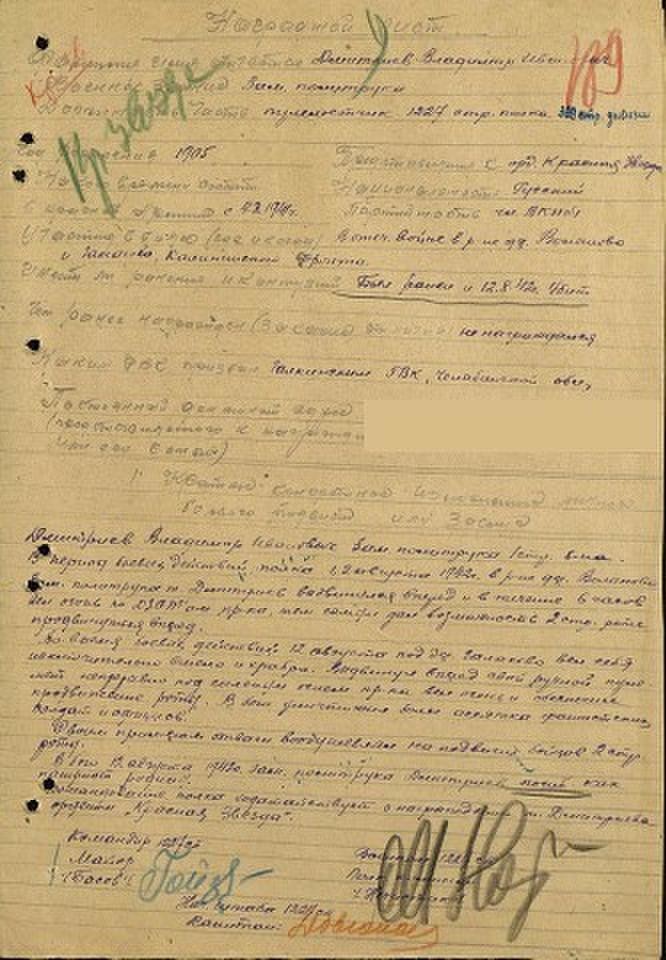 Наградной лист
Фамилия имя отчество Дмитриев Владимир Иванович
Военное звание Зам. политрука
Должность, часть пулеметчик 1227 стр. полка 369 стр. дивизии
Кр Звезда
189
Год рождения 1905
Представляется к орд. Красная Звезда
Национальность Русский
С какого времени состоит
в Красной Армии с 1941г.
Партийность чл. ВКП(б)
Участие в боях (где и когда) В отеч. войне в р-не дд.
и Галахово, Калининский фронт.
Имеет ли ранения и контузии Был ранен и 12.8.42г. убит
Чем ранее награжден (за какие отличия) не награждался
Каким РВК призван Галкинским РВК, Челябинской обл.,
Постоянный домашний адрес
(представляемого к награждению
или его семьи)
I Краткое конкретное изложение личного
боевого подвига или заслуг
Дмитриев Владимир Иванович зам. политрука
В период боевых действий полка 1, 2 августа 1942г. в р-не дд.
зам. политрука т. Дмитриев выдвигался вперед и в течение 6 часов
вел огонь по ДЗОТам пр-ка, тем самым дал возможность 2 стр. роте
продвинуться вперед.
Во время боевых действий 12 августа под дд. Галахово вел себя
исключительно смело и храбро. Выдвинув вперед свой ручной пуле-
мет направил под сильным огнем пр-ка вел огонь и обеспечил
продвижение роты. В бою уничтожил более десятка фашистских
солдат и офицеров.
Своим примером отваги воодушевлял на подвиги бойцов 2 стр.
роты.
В бою 12 августа 1942г. зам. политрука Дмитриев погиб как
патриот родины.
Командование полка ходатайствует о награждении т. Дмитриева
орденом "Красная Звезда".
Командир 1227 сп
Майор
(Басов)
Военком 1227 сп
Нач. штаба 1227 сп
Капитан: